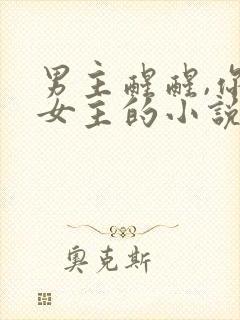 男主醒醒,你
女主的小說
奧克斯